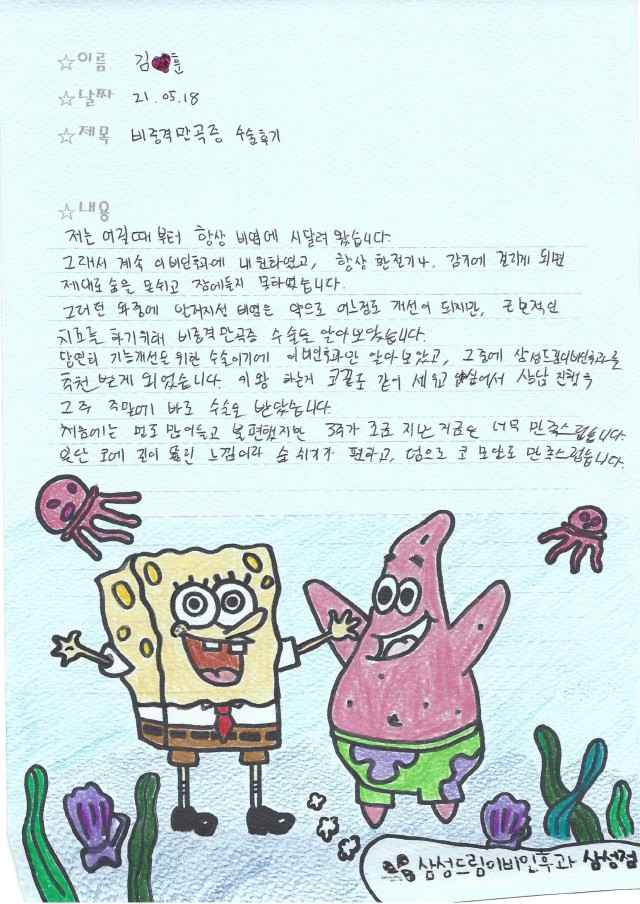 ☆이름 김 훈
☆날짜 21.05.18
☆제목 비중격만곡증 수술후기
☆내용
저는 어릴때부터 항상 비염에 시달려 왔습니다.
그래서 계속 이비인후과에 내원하였고, 항상 환절기나, 감기에 걸리게 되면
제대로 숨을 못쉬고 잠에들지 못하였습니다.
그러던 와중에 알레지성 비염은 약으로 어느정도 개선이 되지만, 근본적인
치료를 하기위해 비중격만곡증 수술을 알아보았습니다.
당연히 기능개선을 위한 수술이기에 이비인후과만 알아보았고, 그중에 삼성드림이비인후과를
추천 받게 되었습니다. 이왕 하는거 코끝도 같이 세우고 싶어서 상담 진행후
그 주 주말에 바로 수술을 받았습니다.
처음에는 먼도 많이들고 불편했지만 3주가 조금 지난 지금은 너무 만족스럽습니다.
일단 코에 길이 뚫린 느낌이라 숨 쉬기가 편하고, 덤으로 코 모양도 만족스럽습니다.
삼성드림이비인후과 삼성점